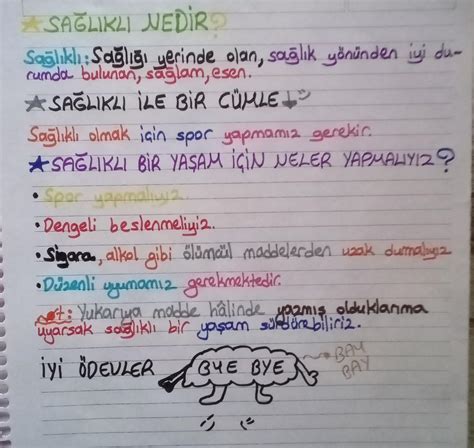 ★SAĞLIKLI NEDİR?
Sağlıklı: Sağlığı yerinde olan, sağlık yönünden iyi du-
rumda bulunan, sağlam, esen.
★SAĞLIKLI İLE BİR CÜMLE↓
Sağlıklı olmak için spor yapmamız gerekir.
★SAĞLIKLI BİR YAŞAM İÇİN NELER YAPMALIYIZ?
• Spor yapmalıyız.
• Dengeli beslenmeliyiz.
• Sigara, alkol gibi ölümcül maddelerden uzak durmalıyız
• Düzenli uyumamız gerekmektedir.
Not: Yukarıya madde hâlinde yazmış olduklarıma
uyarsak sağlıklı bir yaşam sürdürebiliriz.
İYİ ÖDEVLER
BYE BYE
BAY
BAY